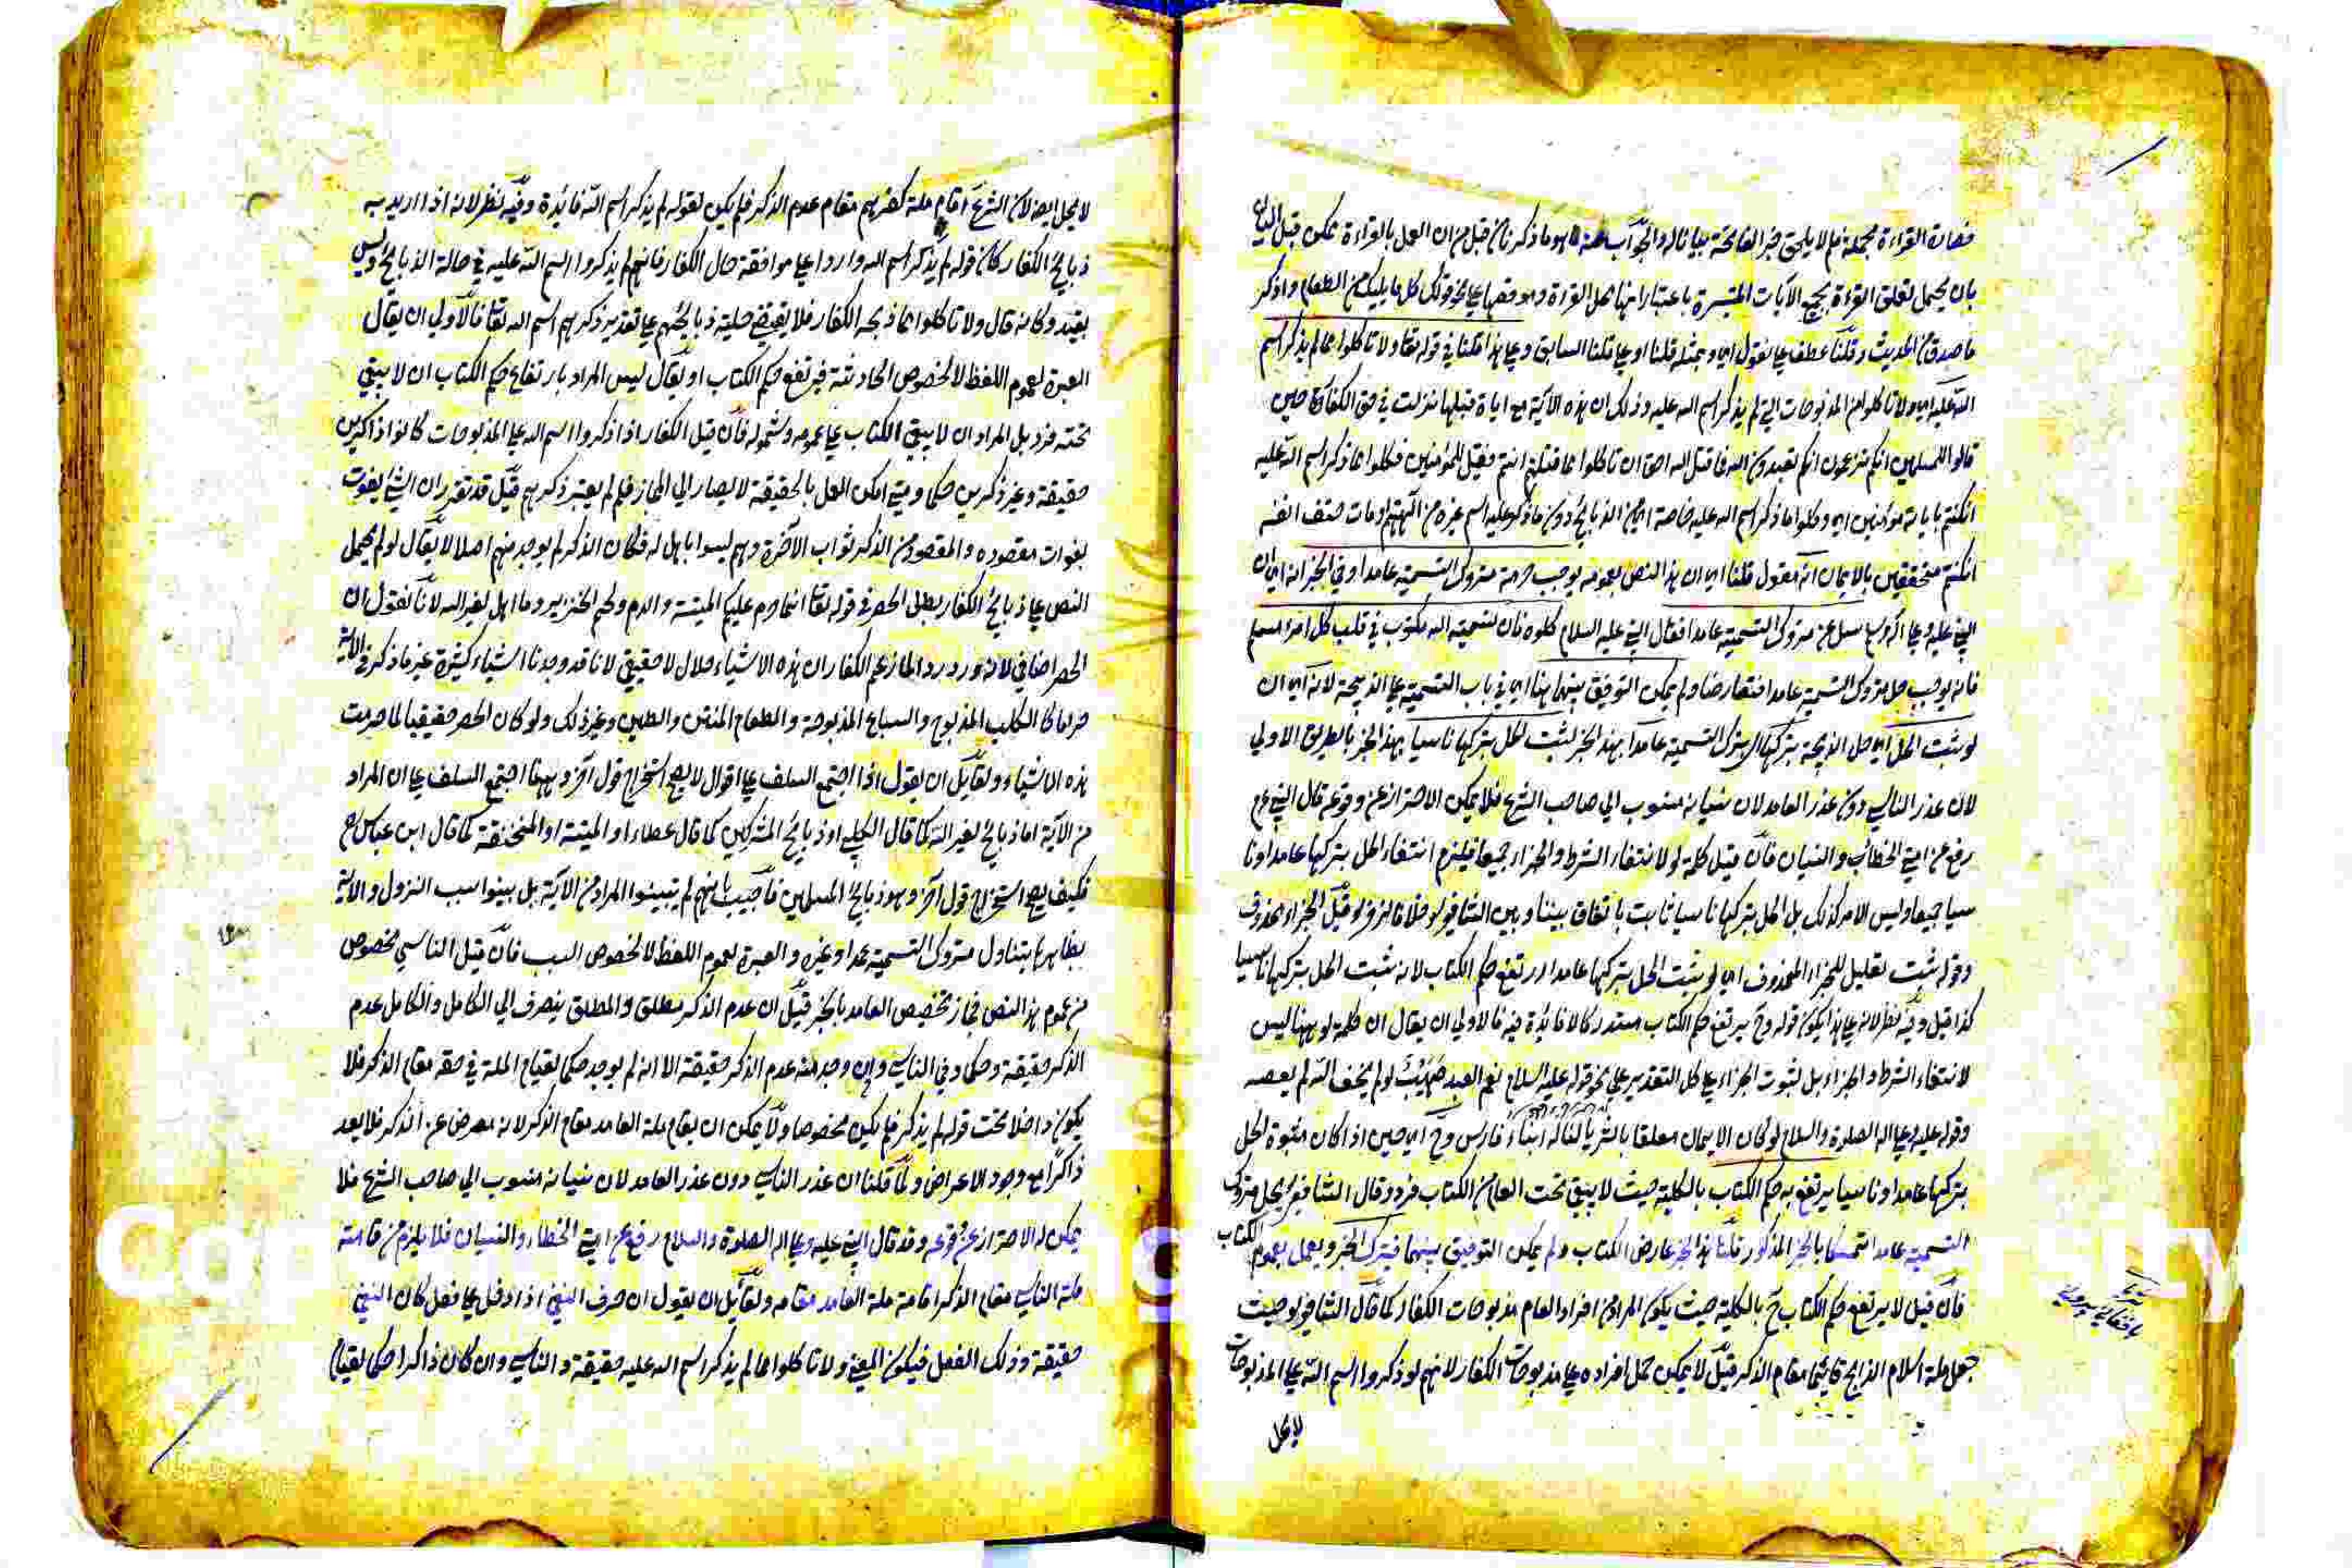 فصارت القراءة مجملة فيما لا يلحق خبر الفاتحة بيانا له والجواب عنه هو ما ذكرنا من قبل من ان العمل بالقراءة يمكن قبل البيان
بان يحمل تعلق القراءة بجميع الآيات المتيسرة باعتبار انها محل القراءة وموقعها على نحو قولك كل ما يليك من الطعام واذكر
ما صدق من الحديث وقلنا عطف على نقول اي وبمثله قلنا او على قلنا السابق وعلى هذا قلنا في قوله تعالى ولا تاكلوا مما لم يذكر اسم
الله عليه اي ولا تاكلوا من المذبوحات التي لم يذكر اسم الله عليه وذلك ان هذه الآية مع اية قبلها نزلت في حق الكفار حين
قالوا للمسلمين انكم تزعمون انكم تعبدون الله فما قتل الله احق ان تاكلوا مما قتلتم انتم فقيل للمؤمنين فكلوا مما ذكر اسم الله عليه
ان كنتم باياته مؤمنين اي وكلوا مما ذكر اسم الله عليه خاصة اي من الذبائح دون ما ذكر عليه اسم غيره من آلهتهم او مات حتف انفه
ان كنتم متحققين بالايمان انه مقول قلنا اي ان هذا النص بعمومه يوجب حرمة متروك التسمية عامدا وفي الخبر انه اي ان
النبي عليه وعلى اله وسلم سئل عن متروك التسمية عامدا فقال النبي عليه السلام كلوه فان تسمية الله مكتوب في قلب كل امرء مسلم
فانه يوجب حل متروك التسمية عامدا فتعارضا ولم يمكن التوفيق بينهما هنا اي في باب التسمية على الذبيحة لانه اي ان
لو ثبت الحل اي حل الذبيحة بتركها اي بترك التسمية عامدا بهذا الخبر لثبت الحل بتركها ناسيا بهذا الخبر بالطريق الاولى
لان عذر الناسي دون عذر العامد لان نسيانه منسوب الى صاحب الشرع فلا يمكن الاحتراز عن وقوعه قال النبي ع م
رفع عن امتي الخطأ والنسيان فان قيل كلمة لو لانتفاء الشرط والجزاء جميعا فيلزم انتفاء الحل بتركها عامدا ونا
سيا جميعا وليس الامر كذلك بل الحل بتركها ناسيا ثابت باتفاق بيننا وبين الشافعي قيل الجزاء محذوف
وقوله ثبت تعليل للجزاء المحذوف اي لو يثبت الحل بتركها عامدا ارتفع حكم الكتاب لانه ثبت الحل بتركها ناسيا
كذا قيل وفيه نظر لانه على هذا يكون قوله وح يرتفع حكم الكتاب مستدركا لا فائدة فيه فالاولى ان يقال ان كلمة لو ههنا ليس
لانتفاء الشرط والجزاء بل لثبوت الجزاء على كل التقدير على نحو قوله عليه السلام نعم العبد صهيب لو لم يخف الله لم يعصه
وقوله عليه وعلى اله الصلوة والسلام لو كان الايمان معلقا بالثريا لناله ابناء فارس وح اي حين اذا كان مثبوة الحل
بتركها عامدا وناسيا يرتفع به حكم الكتاب بالكلية حيث لا يبقى تحت العام من الكتاب فرد وقال الشافعي يحل متروك
التسمية عامدا تمسكا بالخبر المذكور قلنا هذا الخبر عارض الكتاب ولم يمكن التوفيق بينهما فيترك الخبر ويعمل بعموم الكتاب
فان قيل لا يرتفع حكم الكتاب ح بالكلية حيث يكون المراد من افراد العام مذبوحات الكفار كما قال الشافعي حيث
جعل ملة اسلام الذابح قائما مقام الذكر قيل لا يمكن حمل افراده على مذبوحات الكفار لانهم لو ذكروا اسم الله على المذبوحات
لا يحل
لا يحل ايضا لان الشرع اقام ملة كفرهم مقام عدم الذكر فلم يكن لقوله لم يذكر اسم الله فائدة وفيه نظر لانه اذا اريد به
ذبائح الكفار كان قوله لم يذكر اسم الله واردا على موافقة حال الكفار فانهم لم يذكروا اسم الله عليه في حالة الذبائح وليس
بقيد وكانه قال ولا تاكلوا مما ذبحه الكفار فلا يقتضي حلية ذبائحهم على تقدير ذكرهم اسم الله تعالى فالاولى ان يقال
العبرة لعموم اللفظ لا لخصوص الحادثة فيرتفع حكم الكتاب او يقال ليس المراد بارتفاع حكم الكتاب ان لا يبقى
تحته فرد بل المراد ان لا يبقى الكتاب على عمومه وشموله فان قيل الكفار اذا ذكروا اسم الله على المذبوحات كانوا ذاكرين
حقيقة وغير ذاكرين حكما ومتى امكن العمل بالحقيقة لا يصار الى المجاز فلم لم يعتبر ذكرهم قيل قد تقرر ان الشيء يفوت
بفوات مقصوده والمقصود من الذكر ثواب الآخرة وهم ليسوا باهل له فكان الذكر لم يوجد منهم اصلا لا يقال لو لم يحمل
النص على ذبائح الكفار يبطل الحصر في قوله تعالى انما حرم عليكم الميتة والدم ولحم الخنزير وما اهل لغير الله لانا نقول ان
الحصر اضافي لانه ورد ردا لما زعم الكفار ان هذه الاشياء حلال لا حقيقي لانا قد وجدنا اشياء كثيرة غير ما ذكر في الآية
حراما كالكلب المذبوح والسباع المذبوحة والطعام المنتن والطين وغير ذلك ولو كان الحصر حقيقيا لما حرمت
هذه الاشياء ولقائل ان يقول اذا اجتمع السلف على اقوال لا يصح استخراج قول آخر وههنا اجتمع السلف على ان المراد
من الآية اما ذبائح لغير الله كما قال الكلبي او ذبائح المشركين كما قال عطاء او الميتة او المنخنقة كما قال ابن عباس رض
فكيف يصح استخراج قول آخر وهو ذبائح المسلمين فاجيب بانهم لم يبينوا المراد من الآية بل بينوا سبب النزول والآية
بظاهرها يتناول متروك التسمية عمدا وغيره والعبرة لعموم اللفظ لا لخصوص السبب فان قيل الناسي مخصوص
من عموم هذا النص فجاز تخصيص العامد بالخبر قيل ان عدم الذكر مطلق والمطلق ينصرف الى الكامل والكامل عدم
الذكر حقيقة وحكما وفي الناسي وان وجد منه عدم الذكر حقيقة الا انه لم يوجد حكما لقيام الملة في حقه مقام الذكر فلا
يكون داخلا تحت قوله لم يذكر فلم يكن مخصوصا ولا يمكن ان يقام ملة العامد مقام الذكر لانه معرض عن الذكر فلا يعد
ذاكرا مع وجود الاعراض ولما قلنا ان عذر الناسي دون عذر العامد لان نسيانه منسوب الى صاحب الشرع فلا
يمكن له الاحتراز عن وقوعه وقد قال النبي عليه وعلى اله الصلوة والسلام رفع عن امتي الخطاء والنسيان فلا يلزم من قامة
ملة الناسي مقام الذكر اقامة ملة العامد مقامه ولقائل ان يقول ان حرف النفي اذا دخل على فعل كان النفي
حقيقة وذلك الفعل فيكون المعنى ولا تاكلوا مما لم يذكر اسم الله عليه حقيقة والناسي وان كان ذاكرا حكما لقيام